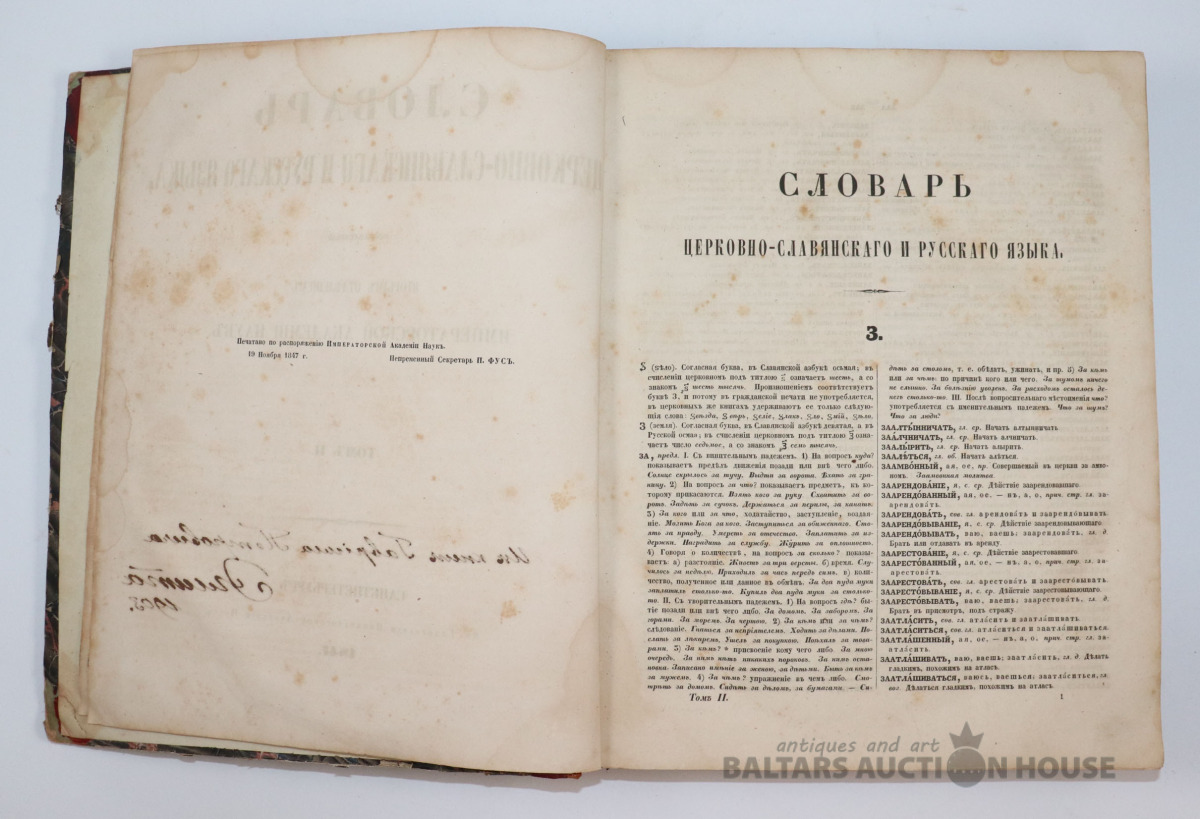 Печатано по распоряженію Императорской Академіи Наукъ.
19 Ноября 1847 г. Непремѣнный Секретарь П. ФУСЪ.
Изъ книгъ Гавріила
1903
СЛОВАРЬ
ЦЕРКОВНО-СЛАВЯНСКАГО И РУССКАГО ЯЗЫКА.
З.
Ѕ (ѕѣло). Согласная буква, въ Славянской азбукѣ осьмая; въ
счисленіи церковномъ подъ титлою означаетъ шесть, а со
знакомъ шесть тысячь. Произношеніемъ соотвѣтствуетъ
буквѣ З, и потому въ гражданской печати не употребляется,
въ церковныхъ же книгахъ удерживаютъ ее только слѣдую-
щія слова: Ѕвѣзда, Ѕвѣрь, Ѕеліе, Ѕлакъ, Ѕло, Ѕмій, Ѕѣло.
З (земля). Согласная буква, въ Славянской азбукѣ девятая, а въ
Русской осмая; въ счисленіи церковномъ подъ титлою озна-
чаетъ число седьмое, а со знакомъ семь тысячь.
ЗА, предл. I. Съ винительнымъ падежемъ. 1) На вопросъ куда?
показываетъ предѣлъ движенія позади или внѣ чего либо.
Солнце скрылось за тучу. Выдти за ворота. Ѣхать за гра-
ницу. 2) На вопросъ за что? показываетъ предметъ, къ ко-
торому прикасаются. Взять кого за руку. Схватить за во-
ротъ. Задѣть за сучокъ. Держаться за перила, за канатъ.
3) За кого или за что, ходатайство, заступленіе, воздая-
ніе. Молить Бога за кого. Заступиться за обиженнаго. Сто-
ять за правду. Умереть за отечество. Заплатить за из-
держки. Наградить за службу. Журить за оплошность.
4) Говоря о количествѣ, на вопросъ за сколько? показы-
ваетъ: а) разстояніе. Живетъ за три версты. б) время. Слу-
чилось за недѣлю. Приходилъ за часъ передъ симъ. в) коли-
чество, полученное или данное въ обмѣнъ. За два пуда муки
заплатилъ столько-то. Купилъ два пуда муки за столько-
то. II. Съ творительнымъ падежемъ. 1) На вопросъ гдѣ? бы-
тіе позади или внѣ чего либо. За домомъ. За заборомъ. За
горами. За моремъ. За чертою. 2) За кѣмъ или за чѣмъ?
слѣдованіе. Гнаться за непріятелемъ. Ходить за дѣлами. По-
слать за лѣкаремъ. Ушелъ за покупкою. Поѣхалъ за това-
рами. 3) За кѣмъ? присвоеніе кому чего либо. За мною
очередь. За нимъ нѣтъ никакихъ пороковъ. За нимъ оста-
новка. Записано имѣніе за женою, за дѣтьми. Быть за кѣмъ
за мужемъ. 4) За чѣмъ? упражненіе въ чемъ либо. Смо-
трѣть за домомъ. Сидѣть за дѣломъ, за бумагами. — Си-
Томъ II.
дѣть за столомъ, т. е. обѣдать, ужинать, и пр. 5) За кѣмъ
или за чѣмъ: по причинѣ кого или чего. За шумомъ ничего
не слышно. За болѣзнію уволенъ. За расходомъ осталось де-
негъ столько-то. III. Послѣ вопросительнаго мѣстоименія что?
употребляется съ именительнымъ падежемъ. Что за шумъ?
Что за люди?
ЗААЛТЫ́ННИЧАТЬ, гл. ср. Начать алтынничать.
ЗАА́ЛЧНИЧАТЬ, гл. ср. Начать алчничать.
ЗААЛЫ́РИТЬ, гл. ср. Начать алырить.
ЗААЛѢ́ТЬСЯ, гл. об. Начать алѣться.
ЗААМВО́ННЫЙ, ая, ое, пр. Совершаемый въ церкви за амво-
номъ. Заамвонная молитва.
ЗААРЕНДОВА́НІЕ, я, с. ср. Дѣйствіе заарендовавшаго.
ЗААРЕНДО́ВАННЫЙ, ая, ое, — нъ, а, о, прич. стр. гл. за-
арендова́ть.
ЗААРЕНДОВА́ТЬ, сов. гл. арендовать и заарендо́вывать.
ЗААРЕНДО́ВЫВАНІЕ, я, с. ср. Дѣйствіе заарендовывающаго.
ЗААРЕНДО́ВЫВАТЬ, ваю, ваешь; заарендова́ть, гл. д.
Брать или отдавать въ аренду.
ЗААРЕСТОВА́НІЕ, я, с. ср. Дѣйствіе заарестовавшаго.
ЗААРЕСТО́ВАННЫЙ, ая, ое, — нъ, а, о, прич. стр. гл. за-
арестова́ть.
ЗААРЕСТОВА́ТЬ, сов. гл. арестова́ть и зааресто́вывать.
ЗААРЕСТО́ВЫВАНІЕ, я, с. ср. Дѣйствіе заарестовывающаго.
ЗААРЕСТО́ВЫВАТЬ, ваю, ваешь; заарестова́ть, гл. д.
Брать въ присмотръ, подъ стражу.
ЗААТЛА́СИТЬ, сов. гл. атла́сить и заатла́шивать.
ЗААТЛА́СИТЬСЯ, сов. гл. атла́ситься и заатла́шиваться.
ЗААТЛА́ШЕННЫЙ, ая, ое, — нъ, а, о, прич. стр. гл. за-
атла́сить.
ЗААТЛА́ШИВАТЬ, ваю, ваешь; заатла́сить, гл. д. Дѣлать
гладкимъ, похожимъ на атласъ.
ЗААТЛА́ШИВАТЬСЯ, ваюсь, ваешься; заатла́ситься, гл.
воз. Дѣлаться гладкимъ, похожимъ на атласъ.
1
antiques and art
BALTARS AUCTION HOUSE